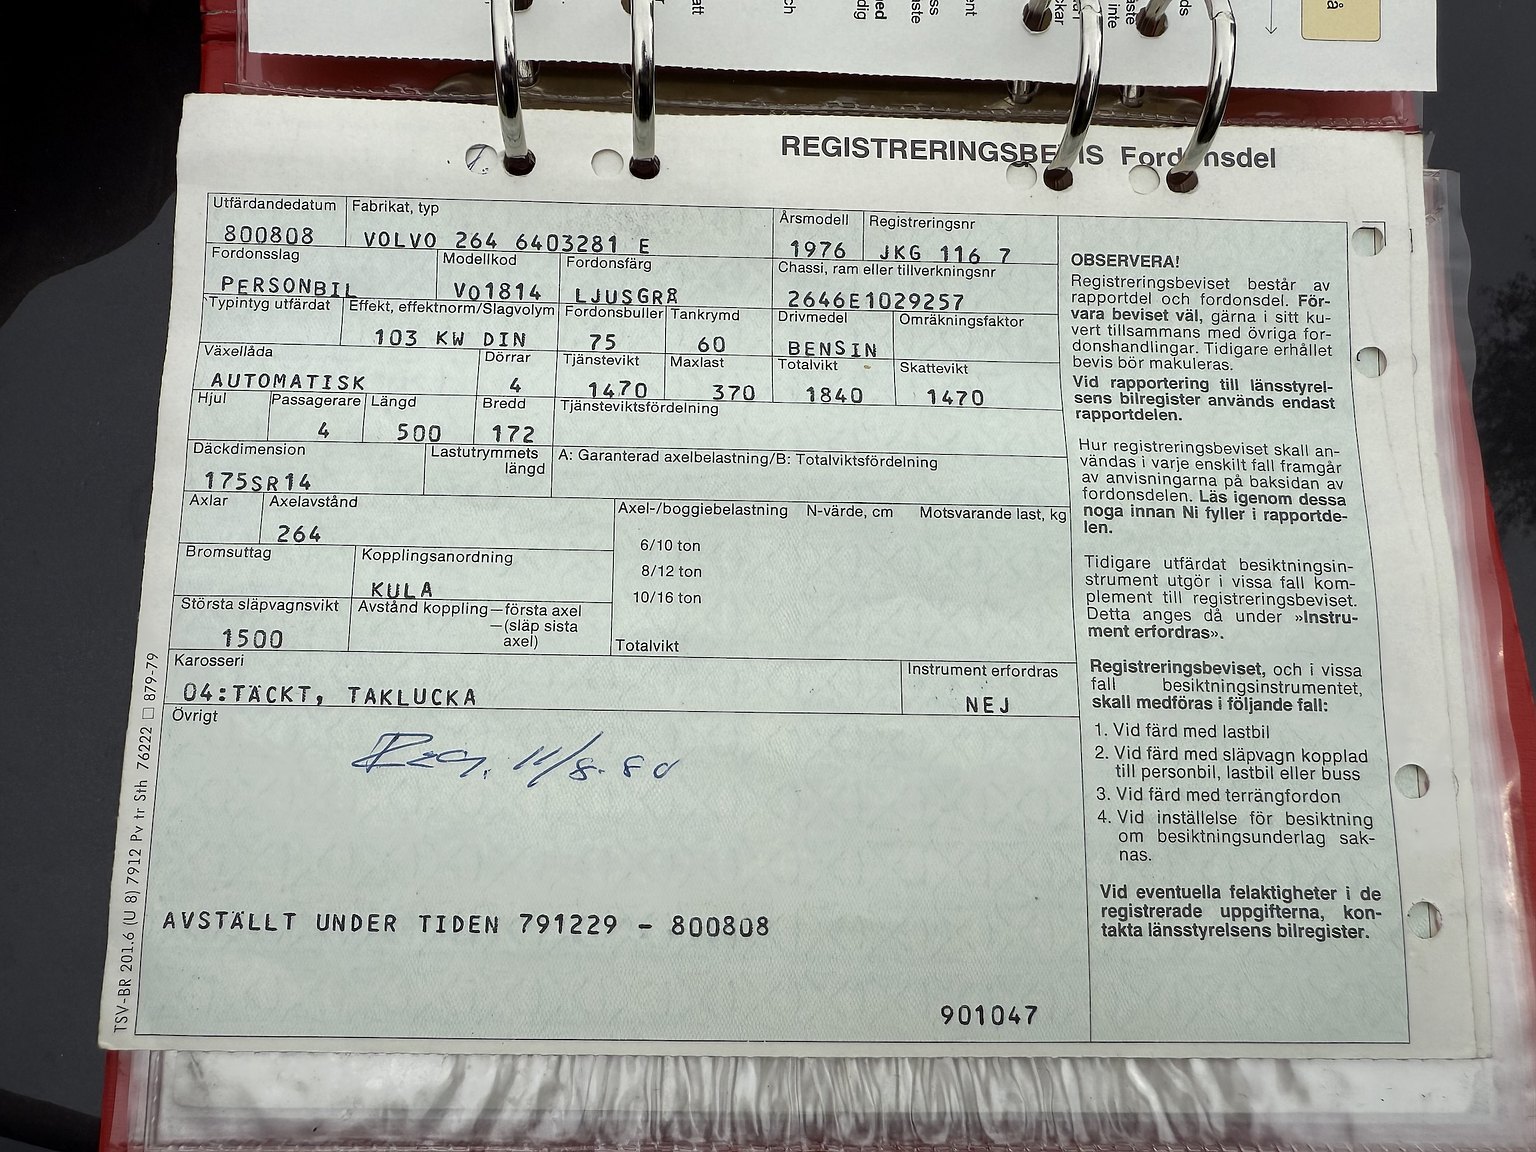 REGISTRERINGSBEVIS Fordonsdel
Utfärdandedatum Fabrikat, typ Årsmodell Registreringsnr
800808 VOLVO 264 6403281 E 1976 JKG 116 7
Fordonsslag Modellkod Fordonsfärg Chassi, ram eller tillverkningsnr
PERSONBIL VO1814 LJUSGRÅ 2646E1029257
Typintyg utfärdat Effekt, effektnorm/Slagvolym Fordonsbuller Tankrymd Drivmedel Omräkningsfaktor
103 KW DIN 75 60 BENSIN
Växellåda Dörrar Tjänstevikt Maxlast Totalvikt Skattevikt
AUTOMATISK 4 1470 370 1840 1470
Hjul Passagerare Längd Bredd Tjänsteviktsfördelning
4 500 172
Däckdimension Lastutrymmets längd A: Garanterad axelbelastning/B: Totalviktsfördelning
175SR14
Axlar Axelavstånd Axel-/boggiebelastning N-värde, cm Motsvarande last, kg
264
6/10 ton
Bromsuttag Kopplingsanordning
8/12 ton
KULA
10/16 ton
Största släpvagnsvikt Avstånd koppling—första axel
—(släp sista
axel)
1500
Totalvikt
Karosseri Instrument erfordras
04:TÄCKT, TAKLUCKA NEJ
Övrigt
Reg. 11/8-80
AVSTÄLLT UNDER TIDEN 791229 - 800808
901047
TSV-BR 201.6 (U 8) 7912 Pv tr Sth 76222 □ 879-79
OBSERVERA!
Registreringsbeviset består av
rapportdel och fordonsdel. För-
vara beviset väl, gärna i sitt ku-
vert tillsammans med övriga for-
donshandlingar. Tidigare erhållet
bevis bör makuleras.
Vid rapportering till länsstyrel-
sens bilregister används endast
rapportdelen.
Hur registreringsbeviset skall an-
vändas i varje enskilt fall framgår
av anvisningarna på baksidan av
fordonsdelen. Läs igenom dessa
noga innan Ni fyller i rapportde-
len.
Tidigare utfärdat besiktningsin-
strument utgör i vissa fall kom-
plement till registreringsbeviset.
Detta anges då under »Instru-
ment erfordras».
Registreringsbeviset, och i vissa
fall besiktningsinstrumentet,
skall medföras i följande fall:
1. Vid färd med lastbil
2. Vid färd med släpvagn kopplad
till personbil, lastbil eller buss
3. Vid färd med terrängfordon
4. Vid inställelse för besiktning
om besiktningsunderlag sak-
nas.
Vid eventuella felaktigheter i de
registrerade uppgifterna, kon-
takta länsstyrelsens bilregister.